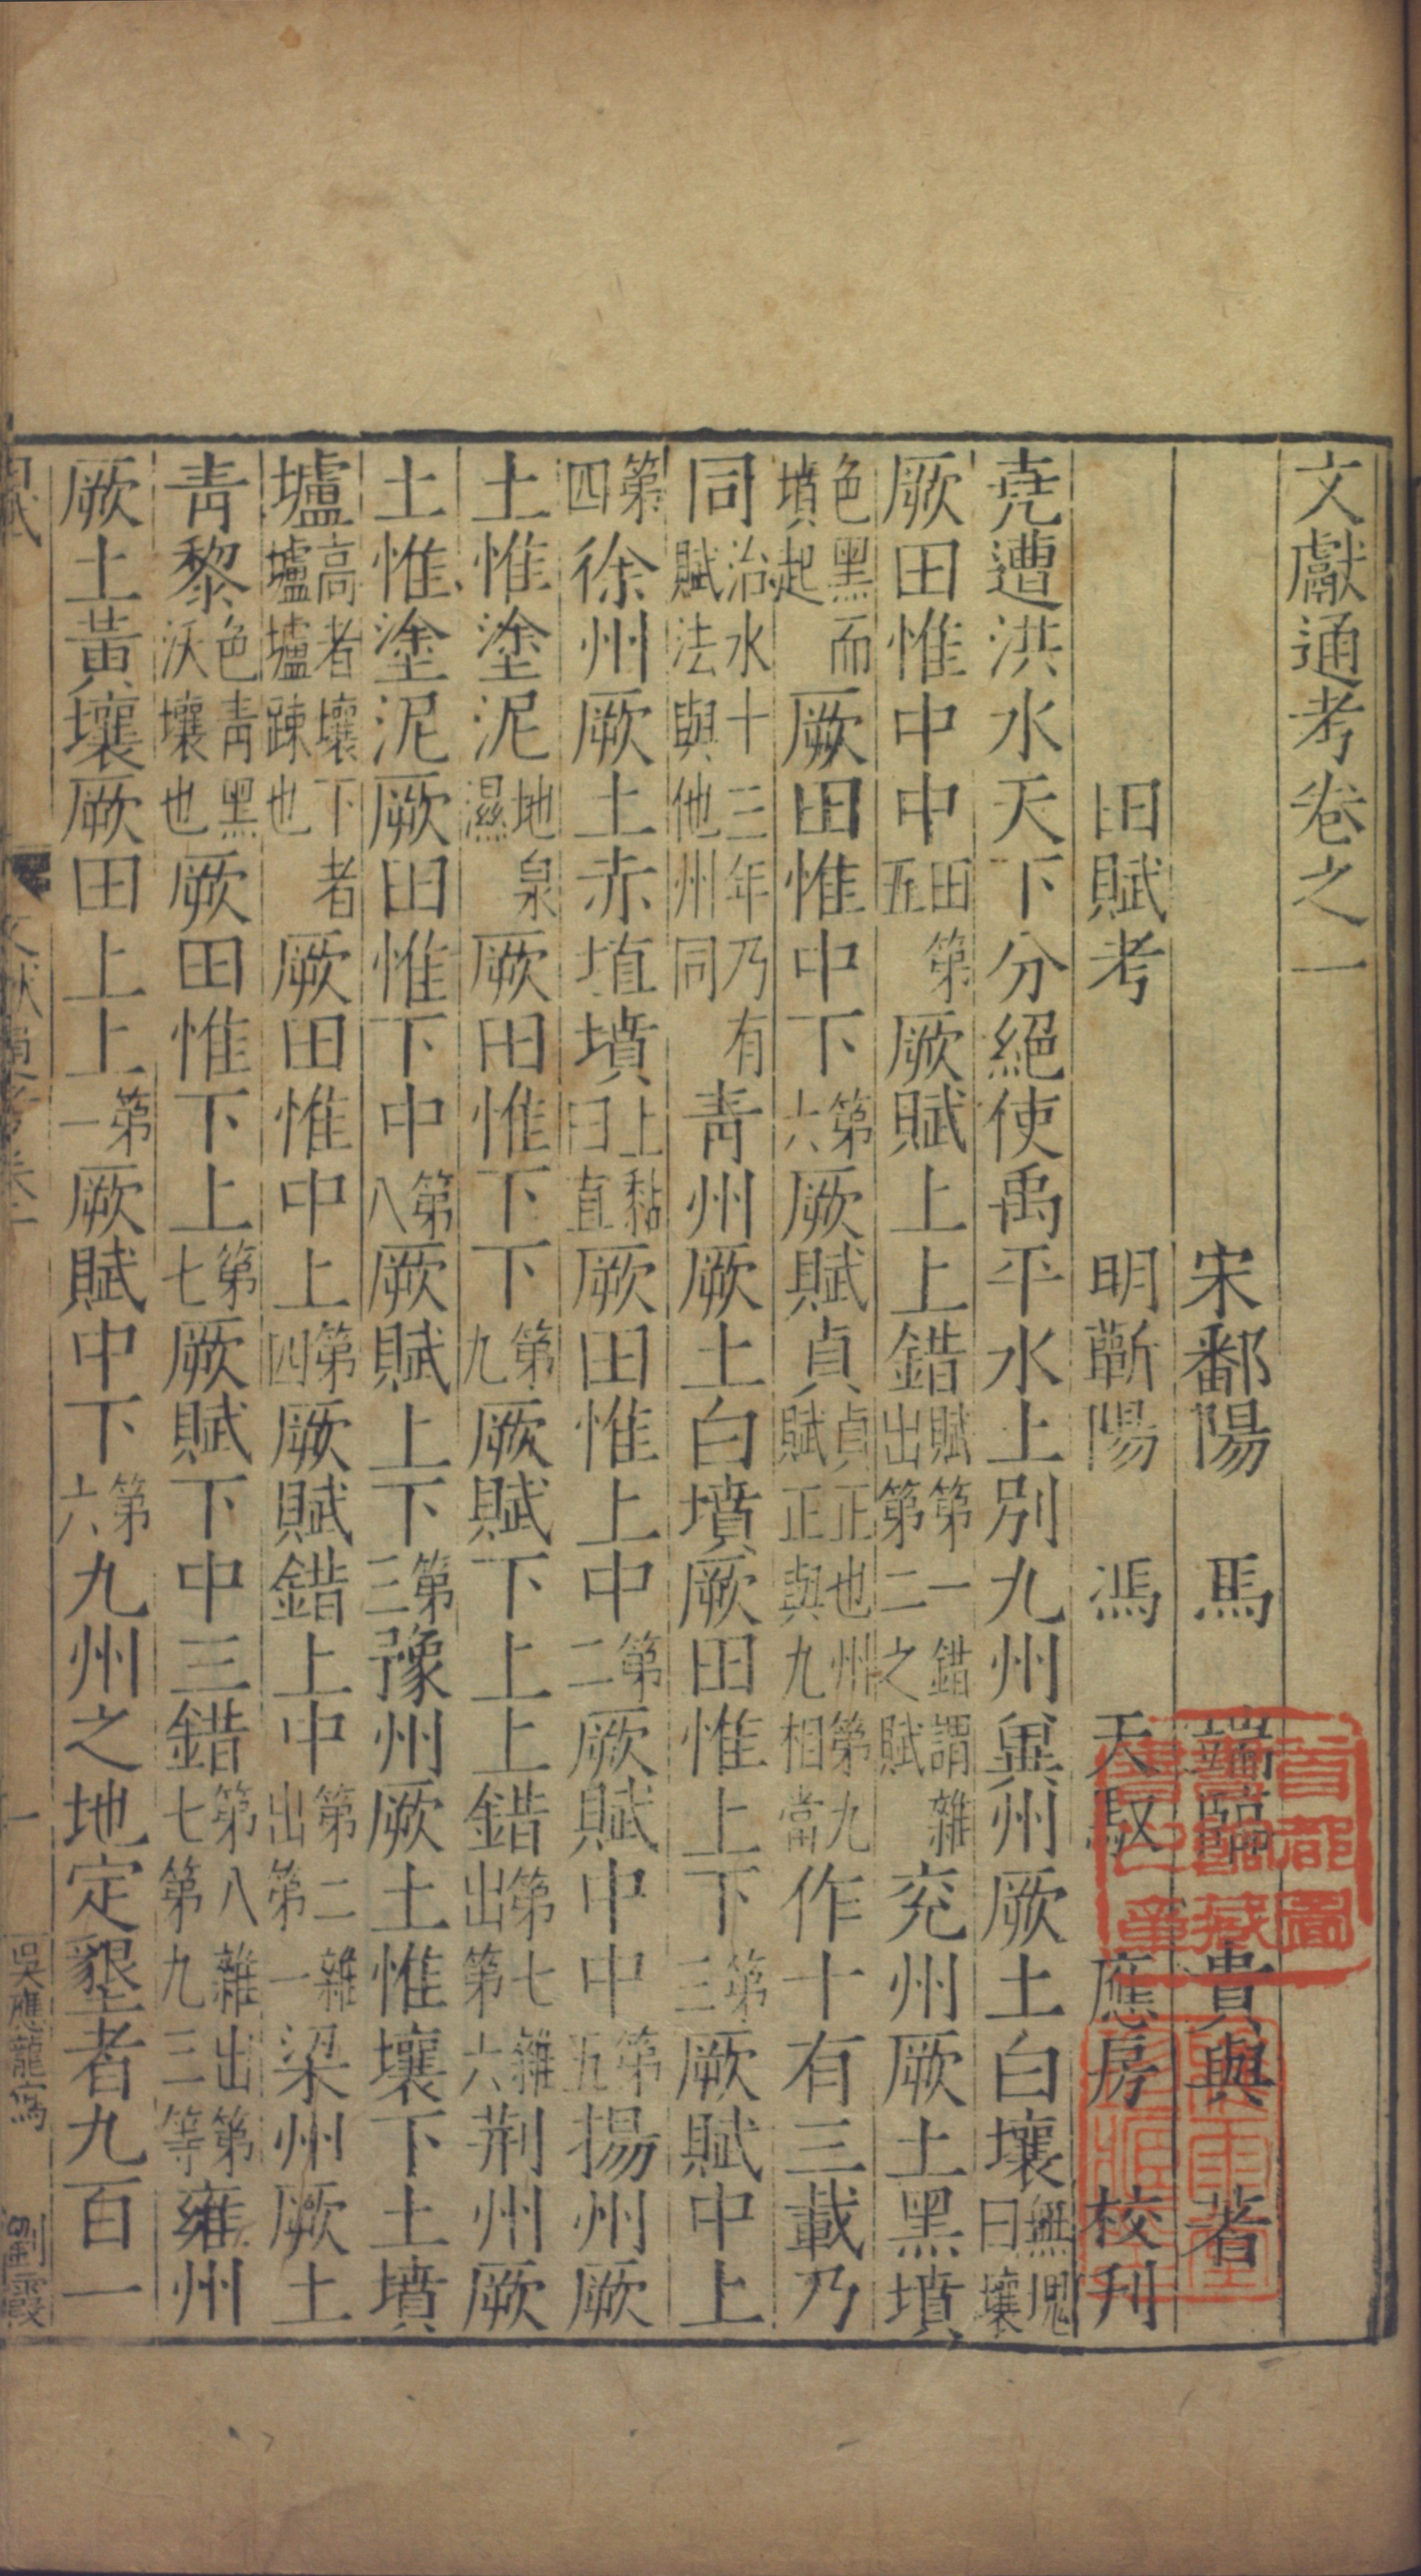 文獻通考卷之一
宋鄱陽 馬 端臨 貴與 著
田賦考 明蘄陽 馮 天馭 應房 校刊
堯遭洪水天下分絕使禹平水土別九州冀州厥土白壤無塊曰壤
厥田惟中中田第五厥賦上上錯賦第一錯謂雜出第二之賦兖州厥土黑墳
色黑而墳起厥田惟中下第六厥賦貞貞正也州第九賦正與九相當作十有三載乃
同治水十三年乃有賦法與他州同青州厥土白墳厥田惟上下第三厥賦中上
第四徐州厥土赤埴墳土黏曰埴厥田惟上中第二厥賦中中第五揚州厥
土惟塗泥地泉濕厥田惟下下第九厥賦下上上錯第七雜出第六荆州厥
土惟塗泥厥田惟下中第八厥賦上下第三豫州厥土惟壤下土墳
壚高者壤下者壚壚疎也厥田惟中上第四厥賦錯上中第二雜出第一梁州厥土
青黎色青黑沃壤也厥田惟下上第七厥賦下中三錯第八雜出第七第九三等雍州
厥土黃壤厥田上上第一厥賦中下第六九州之地定墾者九百一
一
吳應龍寫 劉霞
首都圖書館藏書之章